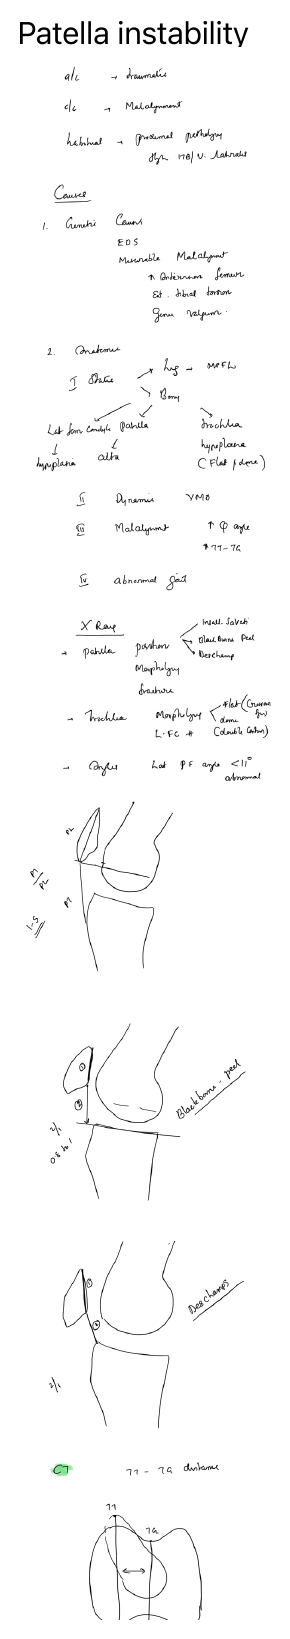 Patella instability
a/c → traumatic
c/c → Malalignment
habitual → proximal pathology
ITB/V. lateralis
Causes
1. Genetic Causes
EDS
Miserable Malalignment
↑ anteversion femur
Ext. tibial torsion
genu valgum.
2. Anatomic
I Static → Lig → MPFL
→ Bony
Lat fem Condyle Patella trochlea
hypoplasia alta hypoplasia
(Flat / dome)
II Dynamic VMO
III Malalignment ↑ Q angle
↑ TT-TG
IV abnormal gait
X Ray
→ patella position Insall Salvati
Blackburne Peel
Deschamp
Morphology
fracture
→ Trochlea Morphology Flat (Crossing
dome
L.FC # (double Contour)
→ Angles Lat PF angle <11°
abnormal
PL
PT/PL PT
I-S
①
②
Blackburne - peel
2/1
0.8 to 1
①
②
Deschamps
2/1
CT TT - TG distance
TT
TG